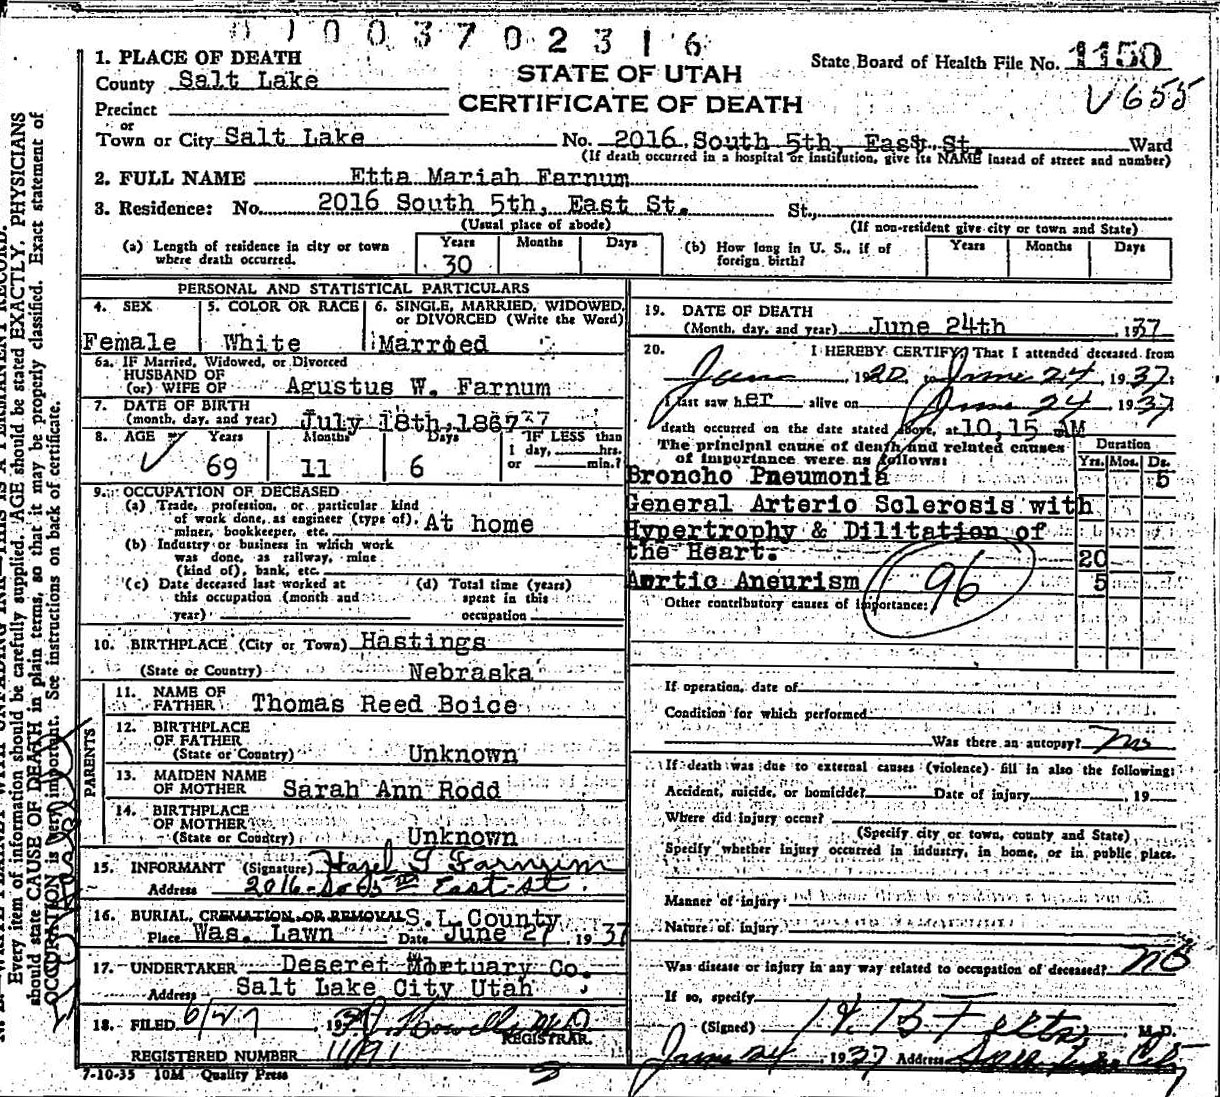 0 1 0 0 3 7 0 2 3 1 6
1. PLACE OF DEATH
County Salt Lake
STATE OF UTAH
CERTIFICATE OF DEATH
State Board of Health File No. 1150
V 655
Precinct
or
Town or City Salt Lake No. 2016 South 5th, East St. Ward
(If death occurred in a hospital or institution, give its NAME instead of street and number)
2. FULL NAME Etta Mariah Farnum
3. Residence: No. 2016 South 5th, East St. St.,
(Usual place of abode) (If non-resident give city or town and State)
(a) Length of residence in city or town where death occurred. Years 30 Months Days
(b) How long in U. S., if of foreign birth? Years Months Days
PERSONAL AND STATISTICAL PARTICULARS
4. SEX Female
5. COLOR OR RACE White
6. SINGLE, MARRIED, WIDOWED, or DIVORCED (Write the Word) Married
6a. IF Married, Widowed, or Divorced
HUSBAND OF
(or) WIFE OF Agustus W. Farnum
7. DATE OF BIRTH
(month, day, and year) July 18th, 1867
8. AGE Years 69 Months 11 Days 6 IF LESS than 1 day, hrs. or min.?
9. OCCUPATION OF DECEASED
(a) Trade, profession, or particular kind
of work done, as engineer (type of), At home
miner, bookkeeper, etc.
(b) Industry or business in which work
was done, as railway, mine
(kind of), bank, etc.
(c) Date deceased last worked at this occupation (month and year)
(d) Total time (years) spent in this occupation
10. BIRTHPLACE (City or Town) Hastings
(State or Country) Nebraska
PARENTS
11. NAME OF FATHER Thomas Reed Boice
12. BIRTHPLACE OF FATHER
(State or Country) Unknown
13. MAIDEN NAME OF MOTHER Sarah Ann Rodd
14. BIRTHPLACE OF MOTHER
(State or Country) Unknown
15. INFORMANT (Signature) Hazel G Farnum
Address 2016 So 5th East St.
16. BURIAL, CREMATION OR REMOVAL S.L. County
Place Was. Lawn Date June 27, 1937
17. UNDERTAKER Deseret Mortuary Co.
Address Salt Lake City Utah
18. FILED 6/27, 193 Howells M.D.
REGISTRAR.
REGISTERED NUMBER 11091
7-10-35 10M Quality Press
19. DATE OF DEATH
(Month, day, and year) June 24th 1937
20. I HEREBY CERTIFY, That I attended deceased from
June 1920 to June 24, 1937
I last saw her alive on June 24, 1937
death occurred on the date stated above, at 10,15 AM
The principal cause of death and related causes of importance were as follows:
Duration
Yrs. Mos. Ds.
Broncho Pneumonia 5
General Arterio Sclerosis with
Hypertrophy & Dilitation of
the Heart. 20
Aortic Aneurism 5
96
Other contributory causes of importance:
If operation, date of
Condition for which performed
Was there an autopsy? no
If death was due to external causes (violence) fill in also the following:
Accident, suicide, or homicide? Date of injury , 19
Where did injury occur?
(Specify city or town, county and State)
Specify whether injury occurred in industry, in home, or in public place.
Manner of injury
Nature of injury
Was disease or injury in any way related to occupation of deceased? no
If so, specify
(Signed) M. D.
June 24, 1937 Address Salt Lake City
Every item of information should be carefully supplied. AGE should be stated EXACTLY. PHYSICIANS
should state CAUSE OF DEATH in plain terms, so that it may be properly classified. Exact statement of
OCCUPATION is very important. See instructions on back of certificate.